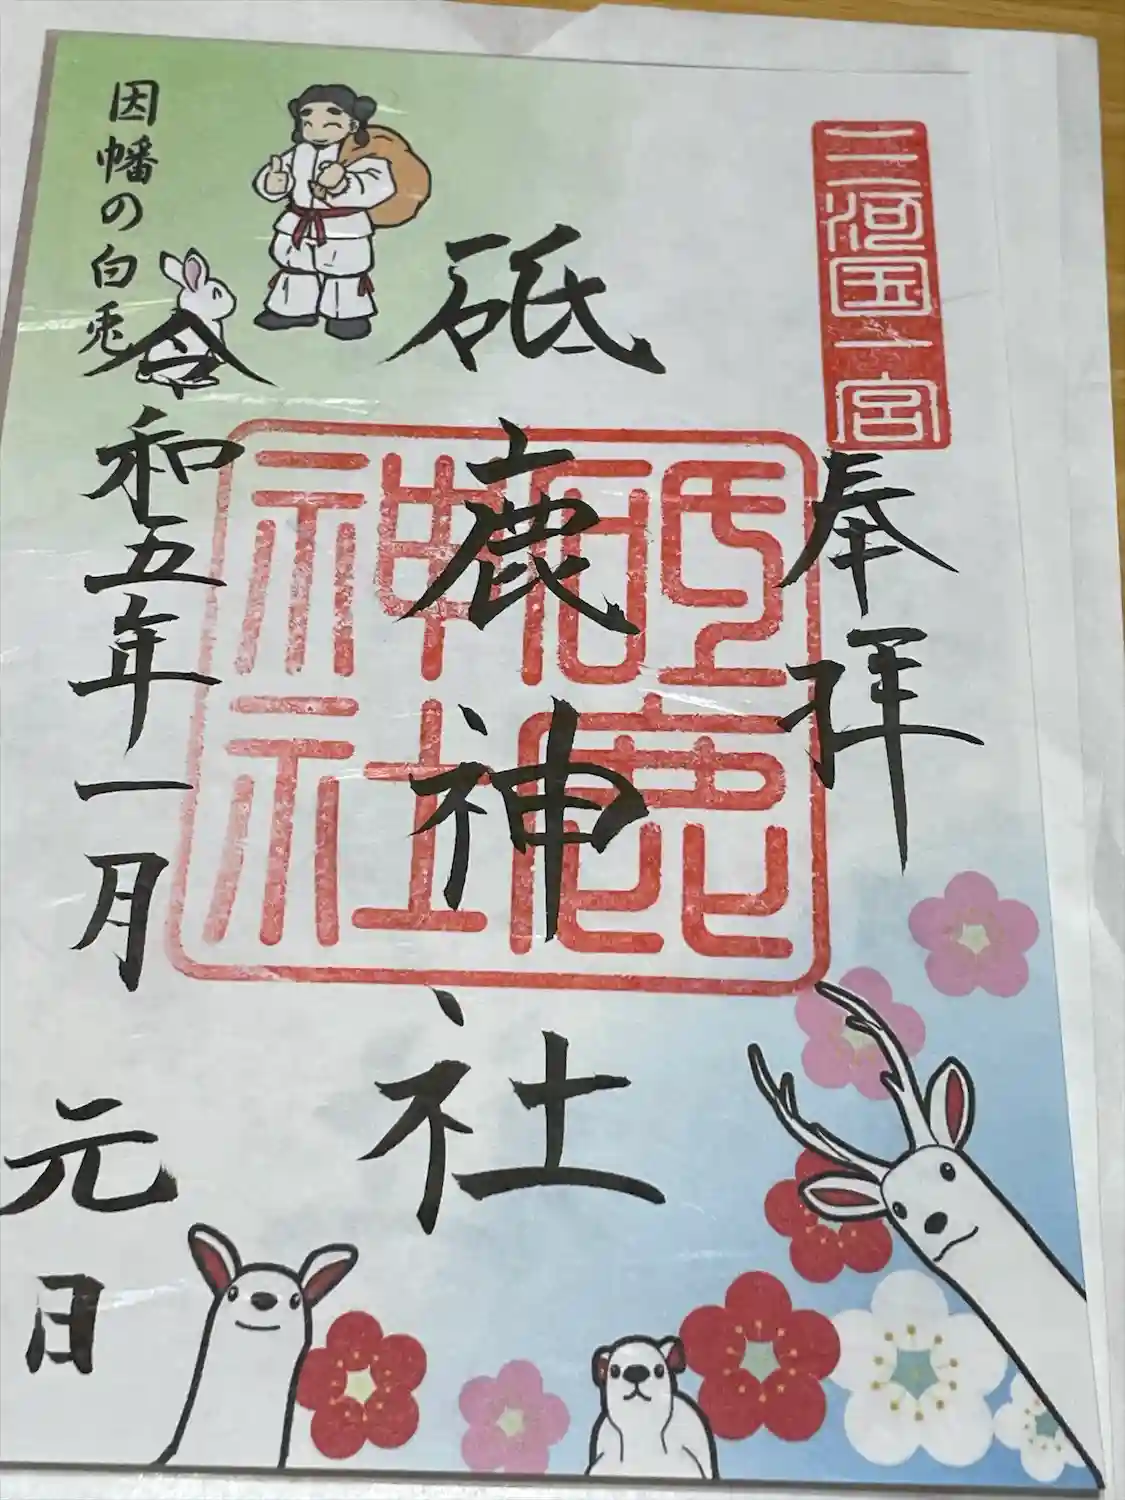 三河国一宮
奉拝
砥鹿神社
砥鹿神社
因幡の白兎
令和五年一月元日